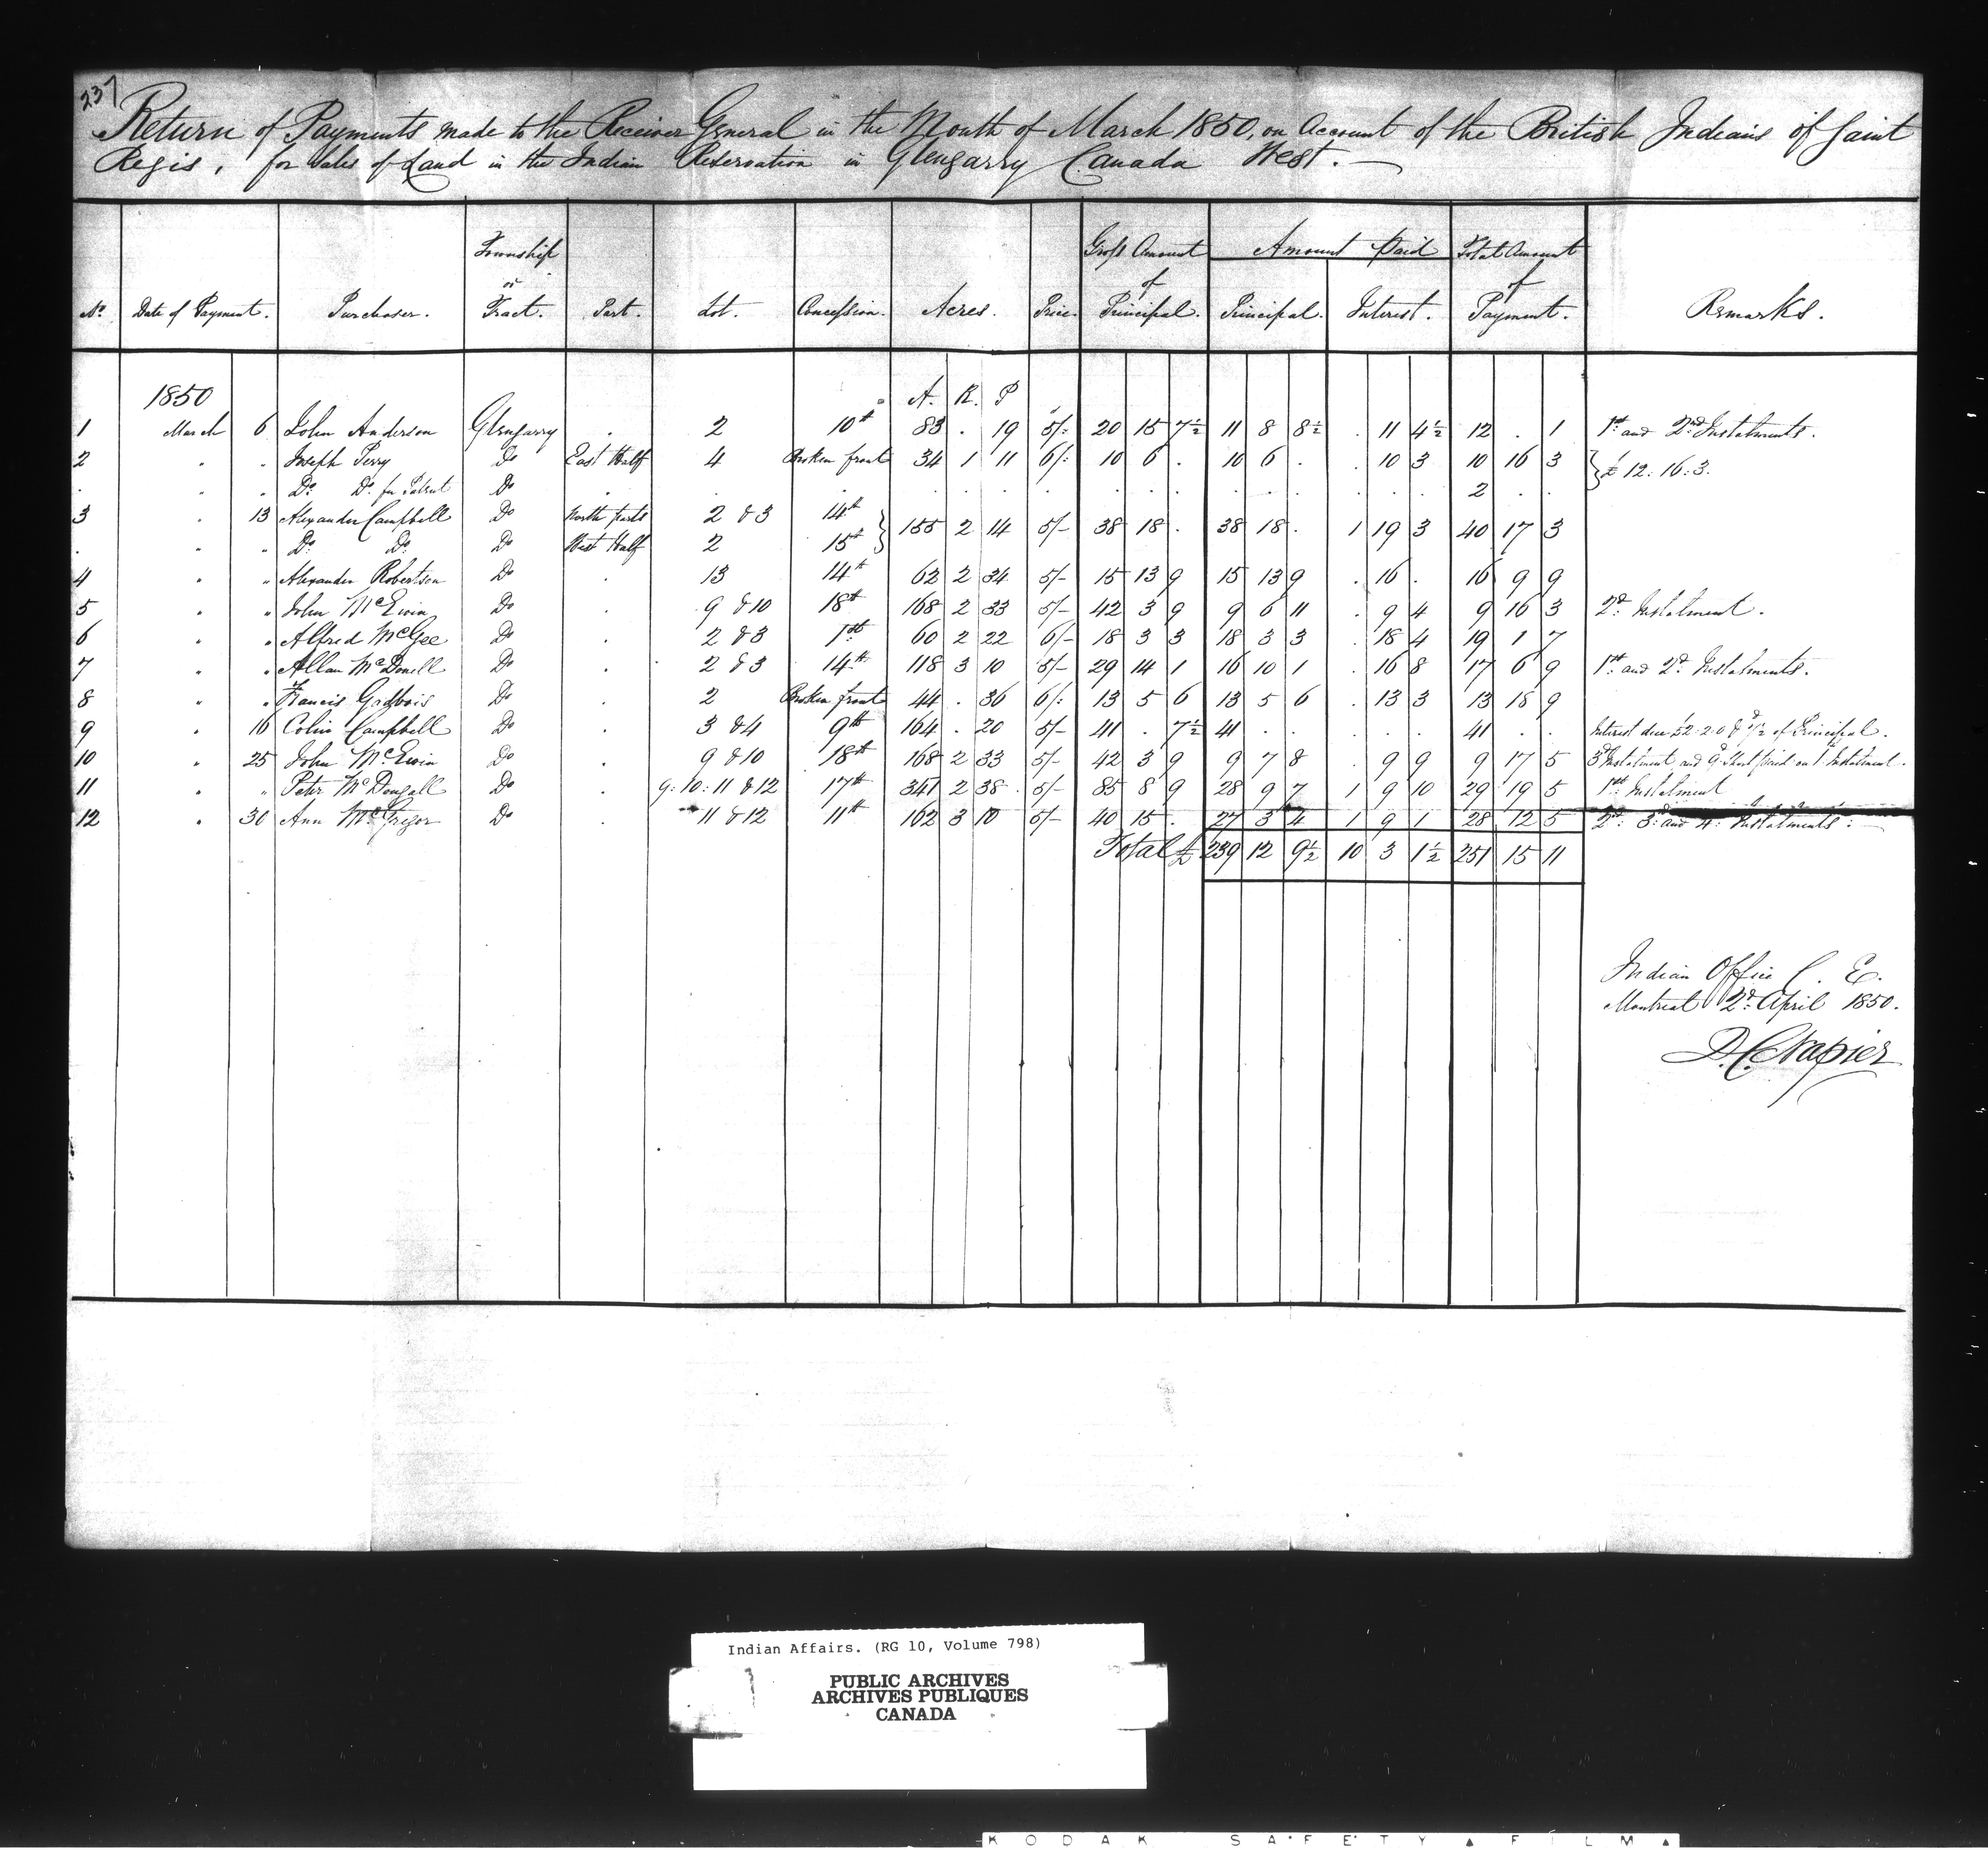 237
Return of Payments made to the Receiver General in the Month of March 1850, on Account of the British Indians of Saint
Regis, for Sales of Land in the Indian Reservation in Glengarry Canada West.
No. Date of Payment. Purchaser. Township or Tract. Part. Lot. Concession. Acres. Price. Gross Amount of Principal. Amount Paid Principal. Interest. Total Amount of Payment. Remarks.
1850 A. R. P
1 March 6 John Anderson Glengarry . 2 10th 83 . 19 5/: 20 15 7½ 11 8 8½ . 11 4½ 12 . 1 1st and 2nd Instalments.
2 " " Joseph Perry Do East Half 4 Broken front 34 1 11 6/: 10 6 . 10 6 . . 10 3 10 16 3 } £12:16:3.
. " " Do Do for Patent Do . . . . . . . . . . . . . . . . 2 . .
3 " 13 Alexander Campbell Do North parts 2 & 3 14th } 155 2 14 5/- 38 18 . 38 18 . 1 19 3 40 17 3
. " " Do Do Do West Half 2 15th }
4 " " Alexander Robertson Do . 13 14th 62 2 34 5/- 15 13 9 15 13 9 . 16 . 16 9 9
5 " " John McEwin Do . 9 & 10 18th 168 2 33 5/- 42 3 9 9 6 11 . 9 4 9 16 3 2d Instalment.
6 " " Alfred McGee Do . 2 & 3 1st 60 2 22 6/- 18 3 3 18 3 3 . 18 4 19 1 7
7 " " Allan McDonell Do . 2 & 3 14th 118 3 10 5/- 29 14 1 16 10 1 . 16 8 17 6 9 1st and 2d Instalments.
8 " " Francis Gadbois Do . 2 Broken front 44 . 36 6/: 13 5 6 13 5 6 . 13 3 13 18 9
9 " 16 Colin Campbell Do . 3 & 4 9th 164 . 20 5/- 41 . 7½ 41 . . . . . 41 . . Interest due £2.2.0 & 7½ of Principal.
10 " 25 John McEwin Do . 9 & 10 18th 168 2 33 5/- 42 3 9 9 7 8 . 9 9 9 17 5 3d Instalment and 9d Short paid on 1st Instalment.
11 " " Peter McDougall Do . 9:10:11 & 12 17th 341 2 38 5/- 85 8 9 28 9 7 1 9 10 29 19 5 1st Instalment
12 " 30 Ann McGregor Do . 11 & 12 11th 162 3 10 5/- 40 15 . 27 3 4 1 9 1 28 12 5 2d: 3d: and 4: Instalments:
Total £ 239 12 9½ 10 3 1½ 251 15 11
Indian Office C. E.
Montreal 2d April 1850.
D. C. Napier
Indian Affairs. (RG 10, Volume 798)
PUBLIC ARCHIVES
ARCHIVES PUBLIQUES
CANADA
KODAK SAFETY FILM